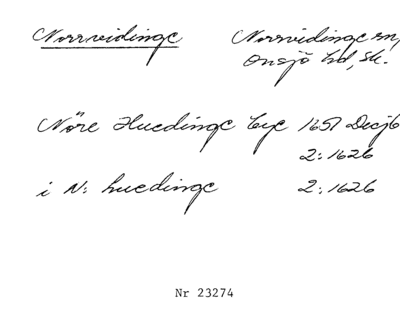 Norrvidinge Norrvidinge sn,
Onsjö hd, Sk.
Nöre Huedinge bye 1651 Decjb
2: 1626
i N: huedinge 2: 1626
Nr 23274